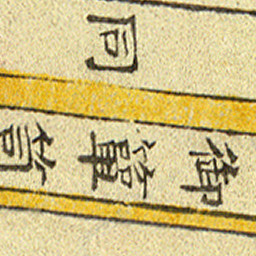 御簞笥
同